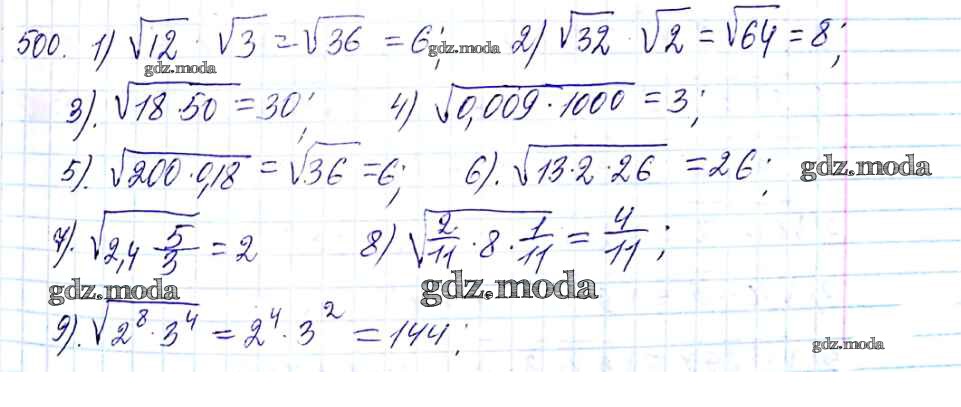 500. 1) √12 · √3 = √36 = 6; 2) √32 · √2 = √64 = 8;
gdz.moda gdz.moda
3). √18·50 = 30; 4) √0,009·1000 = 3;
5). √200·0,18 = √36 = 6; 6). √13·2·26 = 26;
gdz.moda
7). √2,4 5/3 = 2 8) √2/11·8·1/11 = 4/11;
gdz.moda gdz.moda
9). √2⁸·3⁴ = 2⁴·3² = 144;
gdz.moda